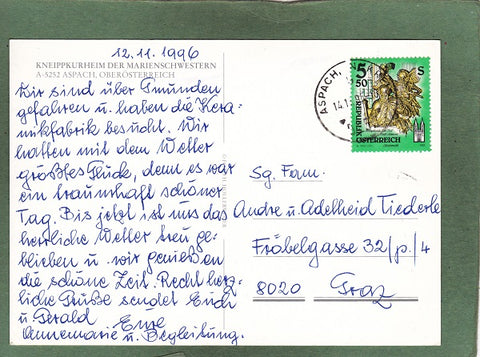 12.11.1996
KNEIPPKURHEIM DER MARIENSCHWESTERN
A-5252 ASPACH, OBERÖSTERREICH
Wir sind über Gmunden
gefahren u. haben die Kera-
mikfabrik besucht. Wir
hatten mit dem Wetter
größtes Glück, denn es war
ein traumhaft schöner
Tag. Bis jetzt ist uns das
herrliche Wetter treu ge-
blieben u. wir genießen
die schöne Zeit. Recht herz-
liche Grüße sendet Euch
u. Gerald Eure
Annemarie u. Begleitung.
ASPACH,
14.1
5 50
S
REPUBLIK
ÖSTERREICH
Sg. Fam.
Andre u. Adelheid Tiederle
Fröbelgasse 32/p./4
8020 Graz